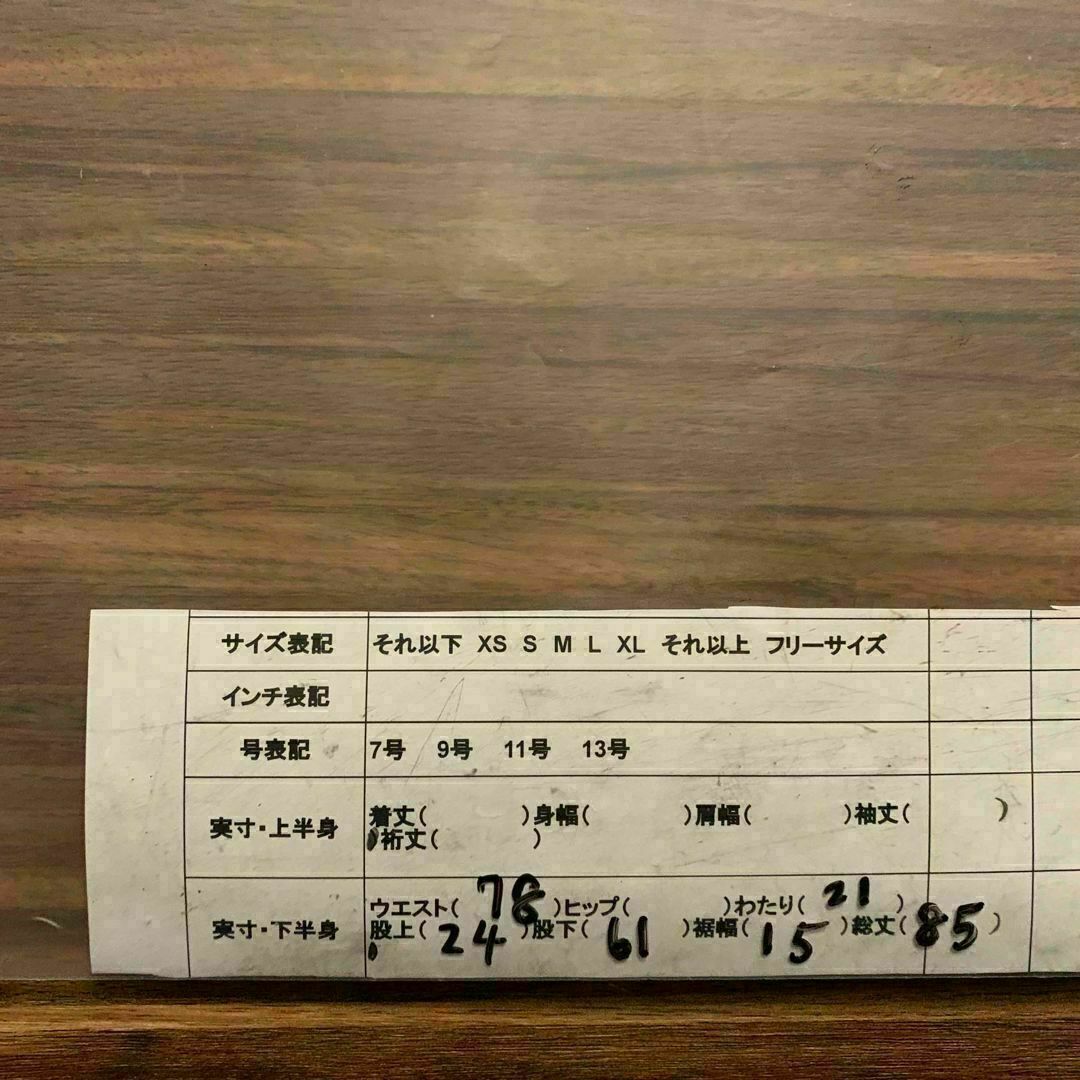 サイズ表記 それ以下 XS S M L XL それ以上 フリーサイズ
インチ表記
号表記 7号 9号 11号 13号
実寸・上半身 着丈( )身幅( )肩幅( )袖丈( )
裄丈( )
実寸・下半身 ウエスト( 78 )ヒップ( )わたり( 21 )
股上( 24 )股下( 61 )裾幅( 15 )総丈( 85 )